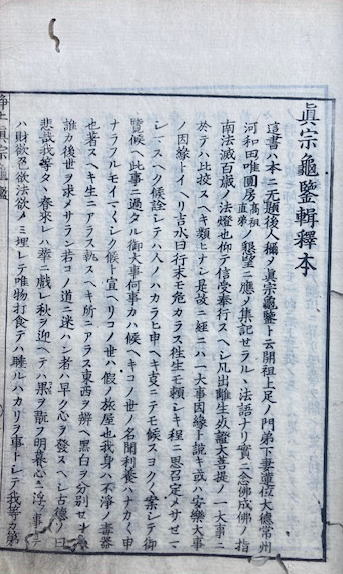 眞宗龜鑒輯釋本
這書ハ本ニ无題後人稱ヲ眞宗龜鑒ト云開祖上足ノ門弟下妻蓮位大德常州
河和田唯圓房高祖直弟ノ懇望ニ應メ集記セラルヽ法語ナリ實ニ念佛成佛ノ指
南法滅百歲ノ法燈也仰テ信受奉行スヘシ凡出離生死證大菩提ノ一大事ニ
於テハ比挍スヘキ類ヒナシ是故ニ經ニハ一大事因緣ト說キ或ハ安樂大事
ノ因緣トイヘリ占水曰行末モ危カラス徃生モ賴シキ程ニ思召定メサセマ
シ〳〵スヘク候詮シテハ人ノハカラヒ申ヘキ支ニテモ候スヨク〳〵案シテ御
覽候ヘ此事ニ過タル御大事何事カハ候ヘキコノ世ノ名聞利養ハナカ〳〵申
ナラフルモイマ〳〵シク候ト宣ヘリコノ世ハ假ノ旅屋也我身ハ不淨ノ毒器
也著スヘキ生ニアラス執スヘキ所ニアラス東西ヲ辨ヘ黑白ヲ分別セン者
誰カ後世ヲ求メサラン若コノ道ニ迷ハン者ハ早ク心ヲ發スヘシ古德ノ曰
悲哉我等タヽ春來レハ華ニ戲レ秋ヲ迎ヘテハ果ヲ翫ヲ明暮心ニ浮フ事
ハ財欲忍欲法欲ノミ埋レテ唯物打食テハ睡ルハカリヲ事トシテ我等カ第
土眞宗龜鑑